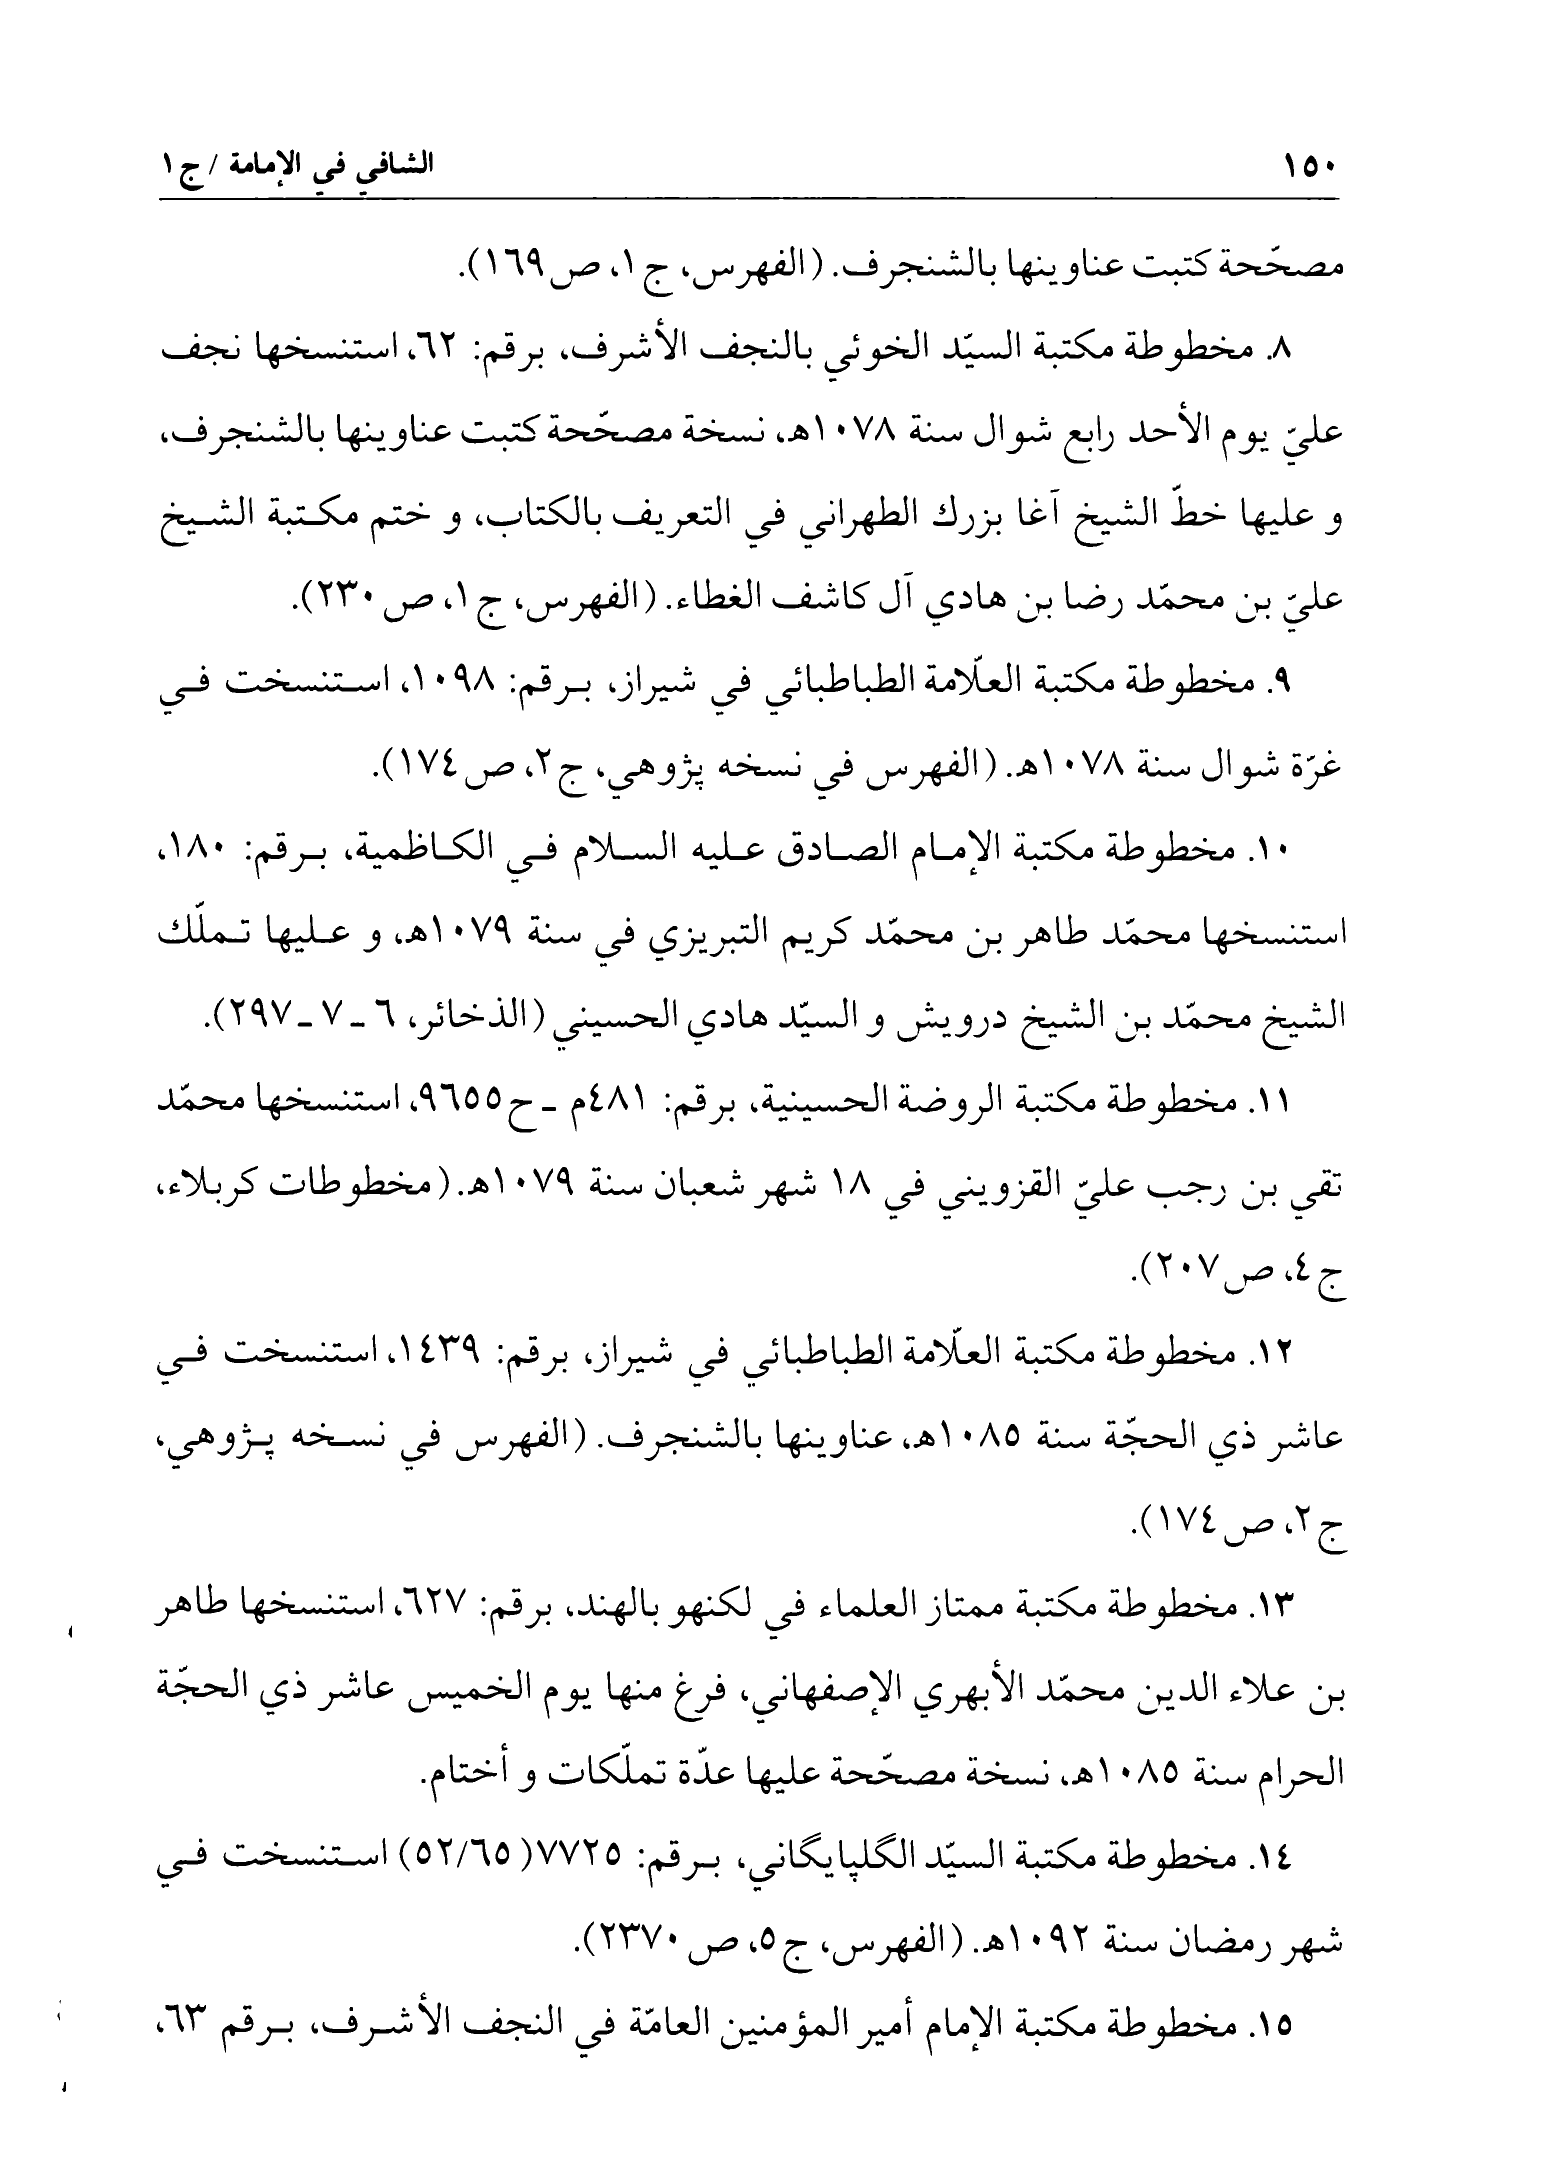 ١٥٠ الشافي في الإمامة / ج١
مصحّحة كتبت عناوينها بالشنجرف. (الفهرس، ج١، ص١٦٩).
٨. مخطوطة مكتبة السيّد الخوئي بالنجف الأشرف، برقم: ٦٢، استنسخها نجف
عليّ يوم الأحد رابع شوال سنة ١٠٧٨هـ، نسخة مصحّحة كتبت عناوينها بالشنجرف،
و عليها خطّ الشيخ آغا بزرك الطهراني في التعريف بالكتاب، و ختم مكتبة الشيخ
عليّ بن محمّد رضا بن هادي آل كاشف الغطاء. (الفهرس، ج١، ص٢٣٠).
٩. مخطوطة مكتبة العلّامة الطباطبائي في شيراز، برقم: ١٠٩٨، استنسخت في
غرّة شوال سنة ١٠٧٨هـ. (الفهرس في نسخه پژوهي، ج٢، ص١٧٤).
١٠. مخطوطة مكتبة الإمام الصادق عليه السلام في الكاظمية، برقم: ١٨٠،
استنسخها محمّد طاهر بن محمّد كريم التبريزي في سنة ١٠٧٩هـ، و عليها تملّك
الشيخ محمّد بن الشيخ درويش و السيّد هادي الحسيني (الذخائر، ٦ ـ ٧ ـ ٢٩٧).
١١. مخطوطة مكتبة الروضة الحسينية، برقم: ٤٨١م ـ ح٩٦٥٥، استنسخها محمّد
تقي بن رجب عليّ القزويني في ١٨ شهر شعبان سنة ١٠٧٩هـ. (مخطوطات كربلاء،
ج٤، ص٢٠٧).
١٢. مخطوطة مكتبة العلّامة الطباطبائي في شيراز، برقم: ١٤٣٩، استنسخت في
عاشر ذي الحجّة سنة ١٠٨٥هـ، عناوينها بالشنجرف. (الفهرس في نسخه پژوهي،
ج٢، ص١٧٤).
١٣. مخطوطة مكتبة ممتاز العلماء في لكنهو بالهند، برقم: ٦٢٧، استنسخها طاهر
بن علاء الدين محمّد الأبهري الإصفهاني، فرغ منها يوم الخميس عاشر ذي الحجّة
الحرام سنة ١٠٨٥هـ، نسخة مصحّحة عليها عدّة تملّكات و أختام.
١٤. مخطوطة مكتبة السيّد الگلپايگاني، برقم: ٧٧٢٥(٥٢/٦٥) استنسخت في
شهر رمضان سنة ١٠٩٢هـ. (الفهرس، ج٥، ص٢٣٧٠).
١٥. مخطوطة مكتبة الإمام أمير المؤمنين العامّة في النجف الأشرف، برقم ٦٣،